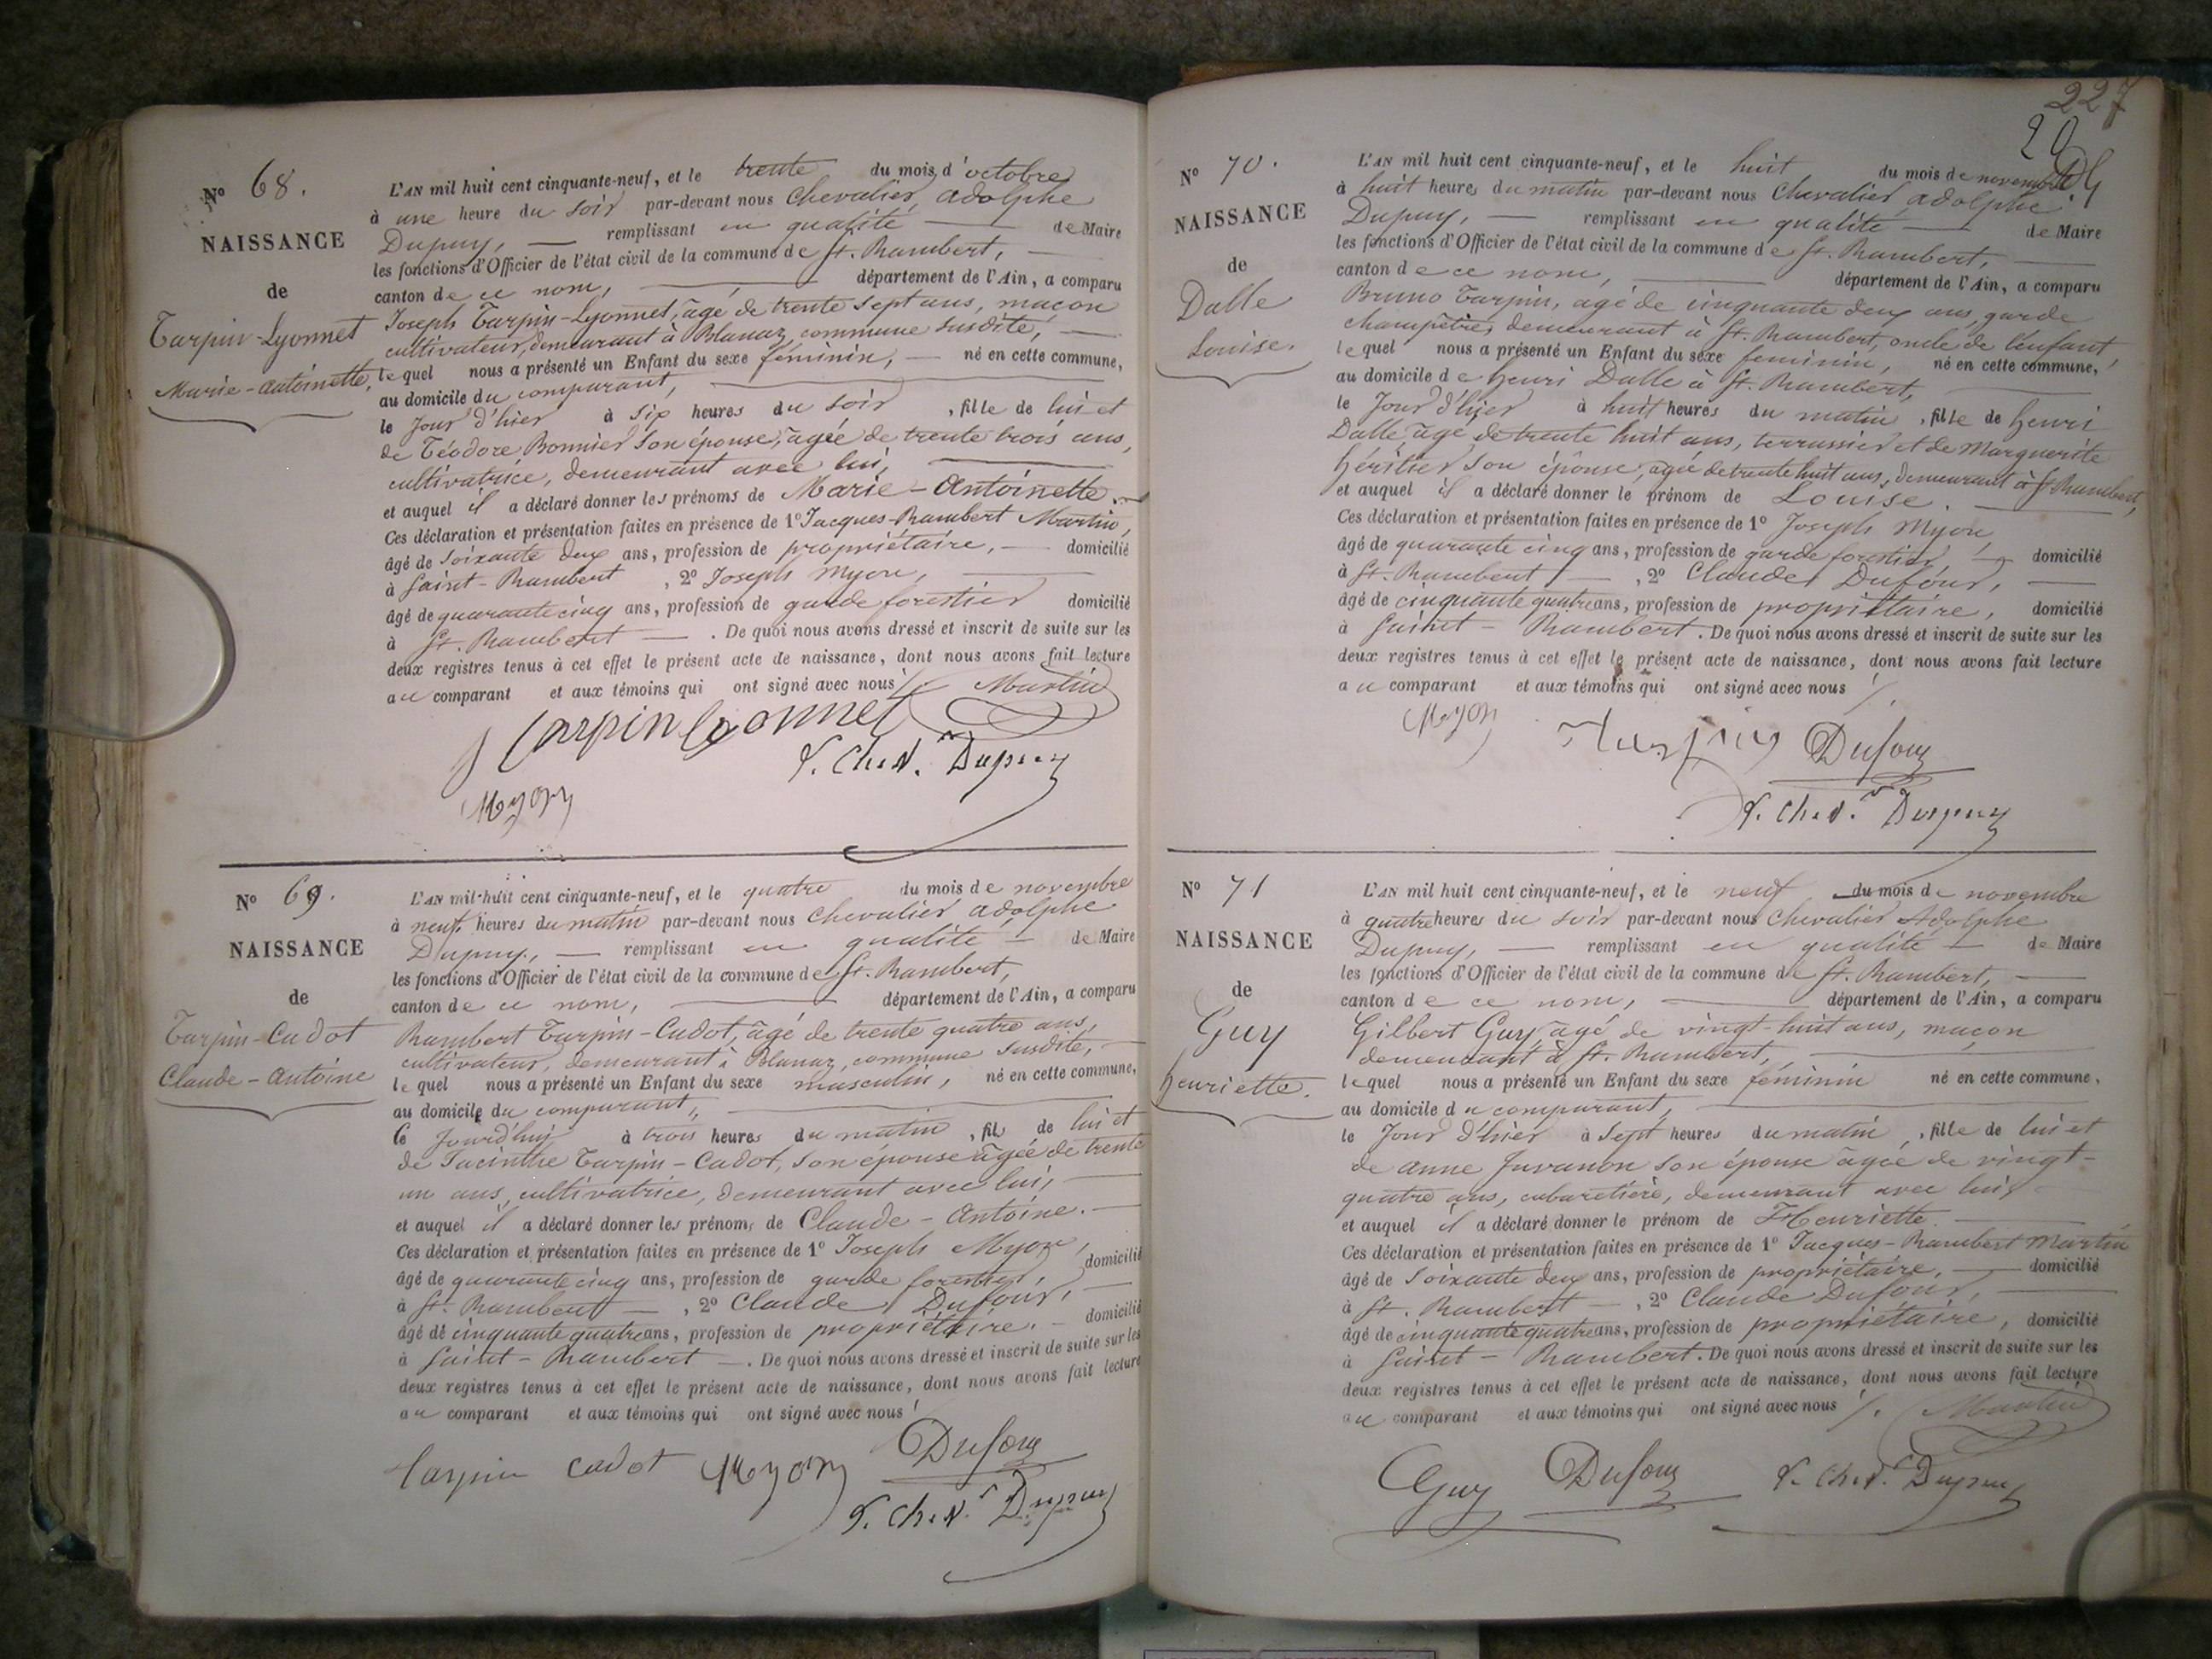 N° 68.
NAISSANCE
de
Tarpin-Lyonnet
Marie-Antoinette.
L'AN mil huit cent cinquante-neuf, et le trente du mois d'octobre
à une heure du soir par-devant nous Chevalier, Adolphe
Dupuy, — remplissant en qualité — de Maire
les fonctions d'Officier de l'état civil de la commune de St. Rambert, —
canton de ce nom, — département de l'Ain, a comparu
Joseph Tarpin-Lyonnet, âgé de trente sept ans, maçon
cultivateur, demeurant à Blanaz, commune susdite, —
lequel nous a présenté un Enfant du sexe féminin, — né en cette commune,
au domicile du comparant, —
le jour d'hier à six heures du soir, fille de lui et
de Téodore Bonnier son épouse, âgée de trente trois ans,
cultivatrice, demeurant avec lui, —
et auquel il a déclaré donner les prénoms de Marie-Antoinette. —
Ces déclaration et présentation faites en présence de 1° Jacques-Rambert Martin,
âgé de soixante deux ans, profession de propriétaire, — domicilié
à Saint-Rambert, 2° Joseph Myon, —
âgé de quarante cinq ans, profession de garde forestier domicilié
à St. Rambert — . De quoi nous avons dressé et inscrit de suite sur les
deux registres tenus à cet effet le présent acte de naissance, dont nous avons fait lecture
au comparant et aux témoins qui ont signé avec nous /. Martin
J Tarpin Lyonnet
Chev. Dupuy
Myon
N° 69.
NAISSANCE
de
Tarpin-Cudot
Claude-Antoine
L'AN mil huit cent cinquante-neuf, et le quatre du mois de novembre
à neuf heures du matin par-devant nous Chevalier, Adolphe
Dupuy, — remplissant en qualité — de Maire
les fonctions d'Officier de l'état civil de la commune de St. Rambert,
canton de ce nom, — département de l'Ain, a comparu
Rambert Tarpin-Cudot, âgé de trente quatre ans,
cultivateur, demeurant à Blanaz, commune susdite, —
lequel nous a présenté un Enfant du sexe masculin, né en cette commune,
au domicile du comparant, —
ce jourd'hui à trois heures du matin, fils de lui et
de Jacinthe Tarpin-Cadot, son épouse âgée de trente
un ans, cultivatrice, demeurant avec lui, —
et auquel il a déclaré donner les prénoms de Claude-Antoine. —
Ces déclaration et présentation faites en présence de 1° Joseph Myon,
âgé de quarante cinq ans, profession de garde forestier, domicilié
à St. Rambert —, 2° Claude Dufour, —
âgé de cinquante quatre ans, profession de propriétaire. — domicilié
à Saint-Rambert — . De quoi nous avons dressé et inscrit de suite sur les
deux registres tenus à cet effet le présent acte de naissance, dont nous avons fait lecture
au comparant et aux témoins qui ont signé avec nous /
Tarpin Cadot Myon Dufour
Chev. Dupuy
227
20
N° 70.
NAISSANCE
de
Dalle
Louise.
L'AN mil huit cent cinquante-neuf, et le huit du mois de novembre
à huit heures du matin par-devant nous Chevalier, Adolphe
Dupuy, — remplissant en qualité — de Maire
les fonctions d'Officier de l'état civil de la commune de St. Rambert, —
canton de ce nom, — département de l'Ain, a comparu
Bruno Tarpin, âgé de cinquante deux ans, garde
champêtre, demeurant à St. Rambert, oncle de l'enfant,
lequel nous a présenté un Enfant du sexe féminin, né en cette commune,
au domicile de henri Dalle à St. Rambert, —
le jour d'hier à huit heures du matin, fille de henri
Dalle, âgé de trente huit ans, terrassier et de Marguerite
héritier son épouse, âgée de trente huit ans, demeurant à St Rambert,
et auquel il a déclaré donner le prénom de Louise. —
Ces déclaration et présentation faites en présence de 1° Joseph Myon,
âgé de quarante cinq ans, profession de garde forestier, — domicilié
à St. Rambert —, 2° Claude Dufour, —
âgé de cinquante quatre ans, profession de propriétaire, domicilié
à Saint-Rambert. De quoi nous avons dressé et inscrit de suite sur les
deux registres tenus à cet effet le présent acte de naissance, dont nous avons fait lecture
au comparant et aux témoins qui ont signé avec nous /.
Myon Tarpin Dufour
Chev. Dupuy
N° 71
NAISSANCE
de
Guy
henriette.
L'AN mil huit cent cinquante-neuf, et le neuf du mois de novembre
à quatre heures du soir par-devant nous Chevalier Adolphe
Dupuy, — remplissant en qualité — de Maire
les fonctions d'Officier de l'état civil de la commune de St. Rambert, —
canton de ce nom, — département de l'Ain, a comparu
Gilbert Guy, âgé de vingt-huit ans, maçon
demeurant à St. Rambert, —
lequel nous a présenté un Enfant du sexe féminin né en cette commune,
au domicile du comparant, —
le jour d'hier à sept heures du matin, fille de lui et
de Anne Juvanon son épouse âgée de vingt-
quatre ans, cabaretière, demeurant avec lui,
et auquel il a déclaré donner le prénom de Henriette. —
Ces déclaration et présentation faites en présence de 1° Jacques-Rambert Martin
âgé de soixante deux ans, profession de propriétaire, — domicilié
à St. Rambert —, 2° Claude Dufour, —
âgé de cinquante quatre ans, profession de propriétaire, domicilié
à Saint-Rambert. De quoi nous avons dressé et inscrit de suite sur les
deux registres tenus à cet effet le présent acte de naissance, dont nous avons fait lecture
au comparant et aux témoins qui ont signé avec nous /. Martin
Guy Dufour Chev. Dupuy